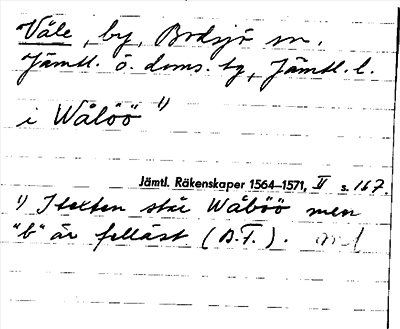 Våle, by, Brdsjö sn.
Jämtl. ö. doms. tg, Jämtl. l.
i Wålöö ¹⁾
Jämtl. Räkenskaper 1564–1571, II s. 167.
¹⁾ I texten står Wåböö men
"b" är felläst (B.F.).